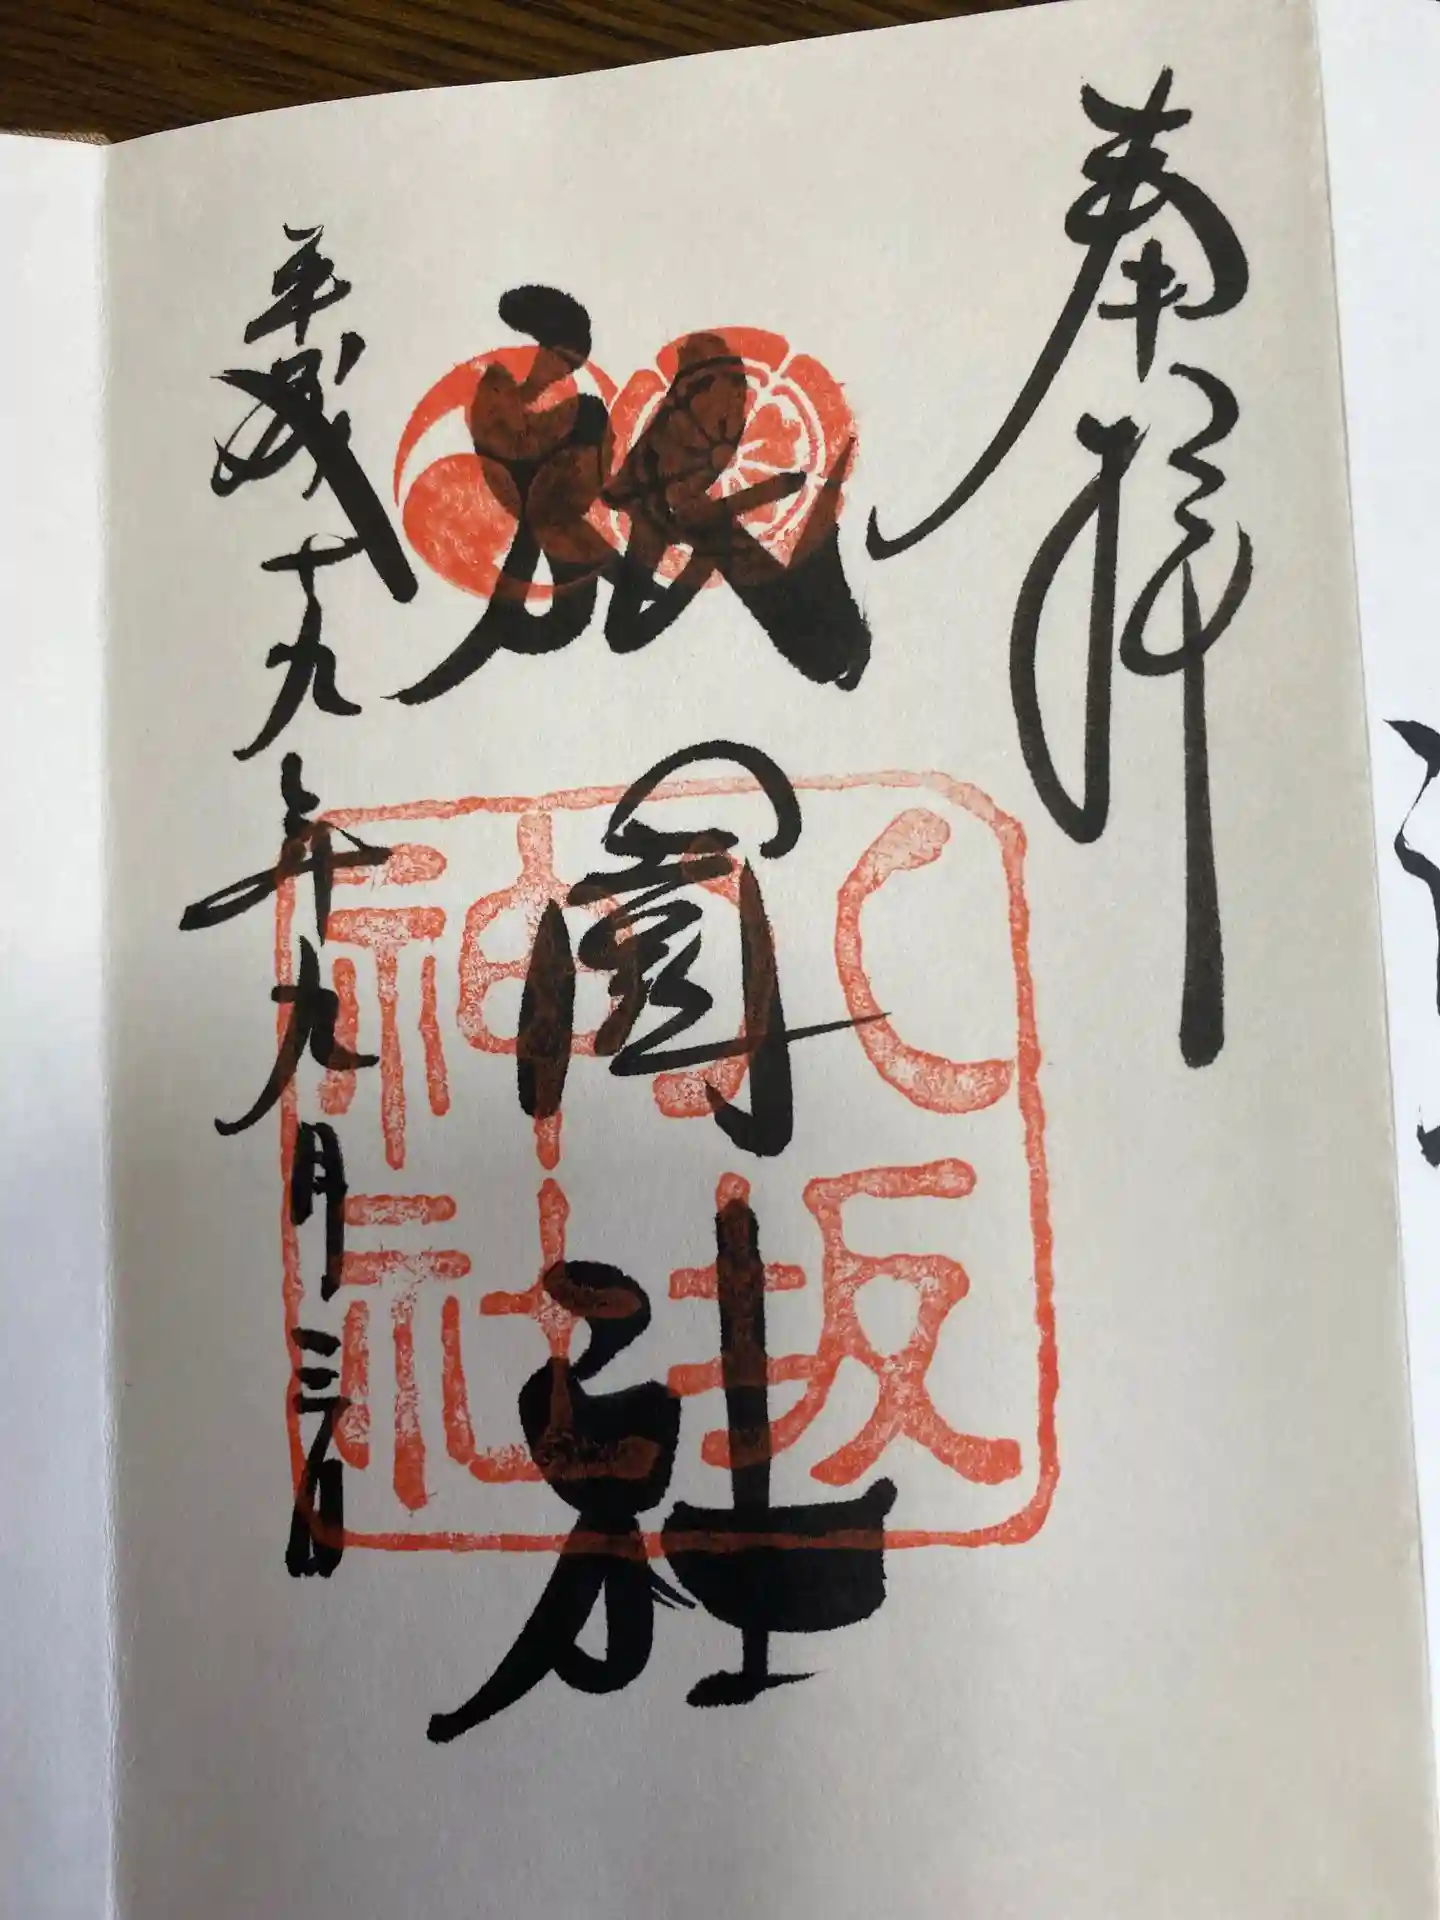 奉拝
祇園社
八坂
神社
平成十九年九月三日